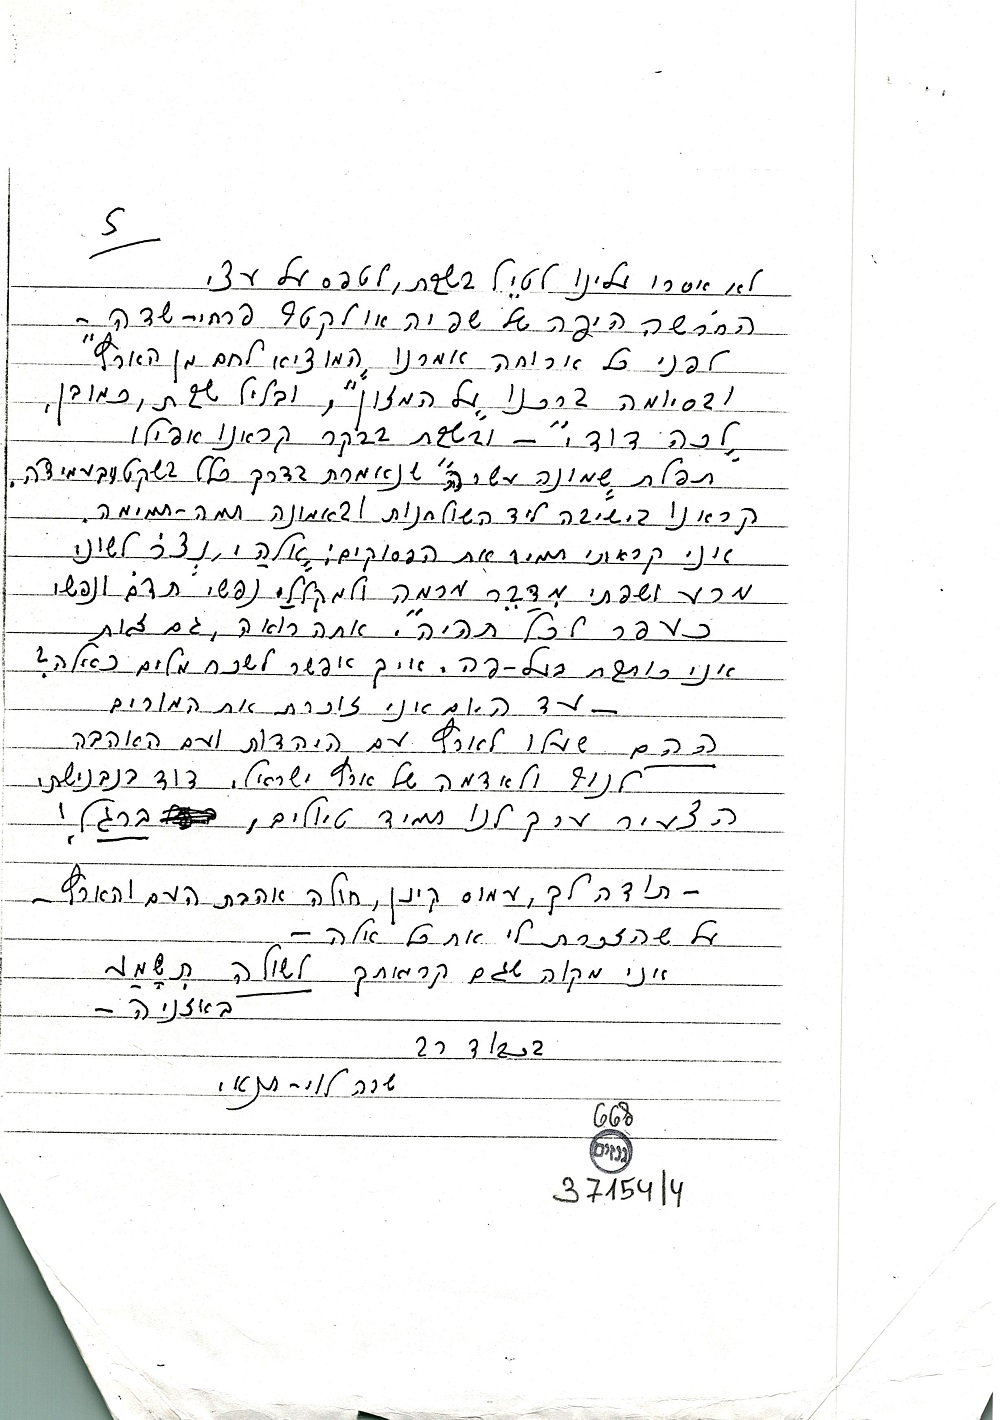 5
לא אסרו עלינו לטייל בשבת, לטפס על עצי
החֹרשה היפה של שפיה או לקטף פרחי-שדה -
לפני כל ארוחה אמרנו "המוציא לחם מן הארץ"
ובסיומה ברכנו "על המזון", ובליל שבת, כמובן,
"לכה דודי" – ובשבת בבקר קראנו אפילו
תפלת "שמונה עשרה" שנאמרת בדרך כלל בשקט ובעמידה.
קראנו בישיבה ליד השולחנות ובאמונה תמה-תמימה.
אני קראתי תמיד את הפסוקים: "אלהַי, נְצֹר לשוני
מרע ושפתי מִדַבֵּר מרמה ולמקלְלַי נפשי תדֹם ונפשי
כעפר לכל תהיה". אתה רואה, גם זאת
אני כותבת בעל-פה. איך אפשר לשכח מלים כאלה?
– עד היום אני זוכרת את המורים
ההם שעלו לארץ עם היהדות ועם האהבה
לנוף ולאדמה של ארץ ישראל. דוד
הצעיר ערך לנו תמיד טיולים, ברגל!
– תודה לך, עמוס קינן, חולה אהבת העם והארץ –
על שהזכרת לי את כל אלה –
אני מקוה שגם קריאתך לשולה תִשָּמַע
באזניה –
בכבוד רב
שרה לוי-תנאי
668
גנזים
37154/4